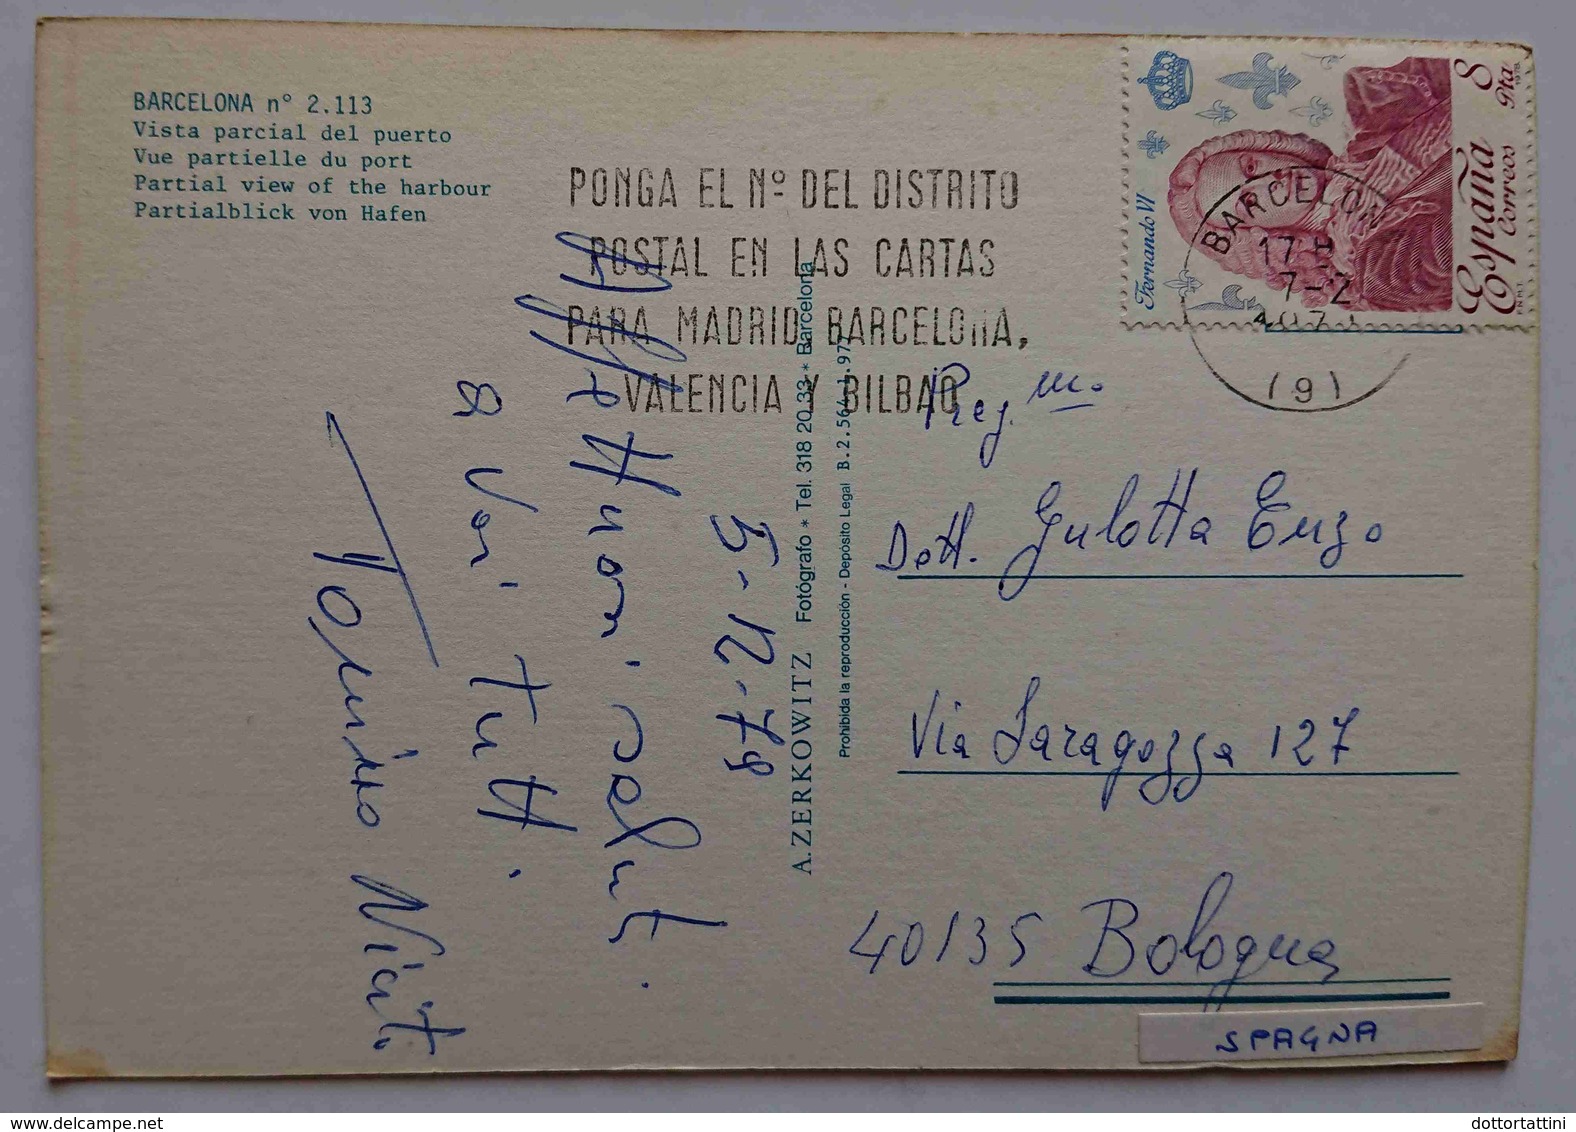 BARCELONA nº 2.113
Vista parcial del puerto
Vue partielle du port
Partial view of the harbour
Partialblick von Hafen
PONGA EL Nº DEL DISTRITO
POSTAL EN LAS CARTAS
PARA MADRID, BARCELONA,
VALENCIA Y BILBAO
Fernando VI
8 Pta
1978
España
Correos
F.N.M.T.
BARCELON
17 H
7-Z
(9)
5-12-79
Affettuosi saluti
a Voi tutti.
A. ZERKOWITZ Fotógrafo * Tel. 318 20 33 * Barcelona
Prohibida la reproducción - Depósito Legal B.2.564-1.977
Preg.mo
Dott. Gulotta Enzo
Via Saragozza 127
40135 Bologna
SPAGNA
dottortattini